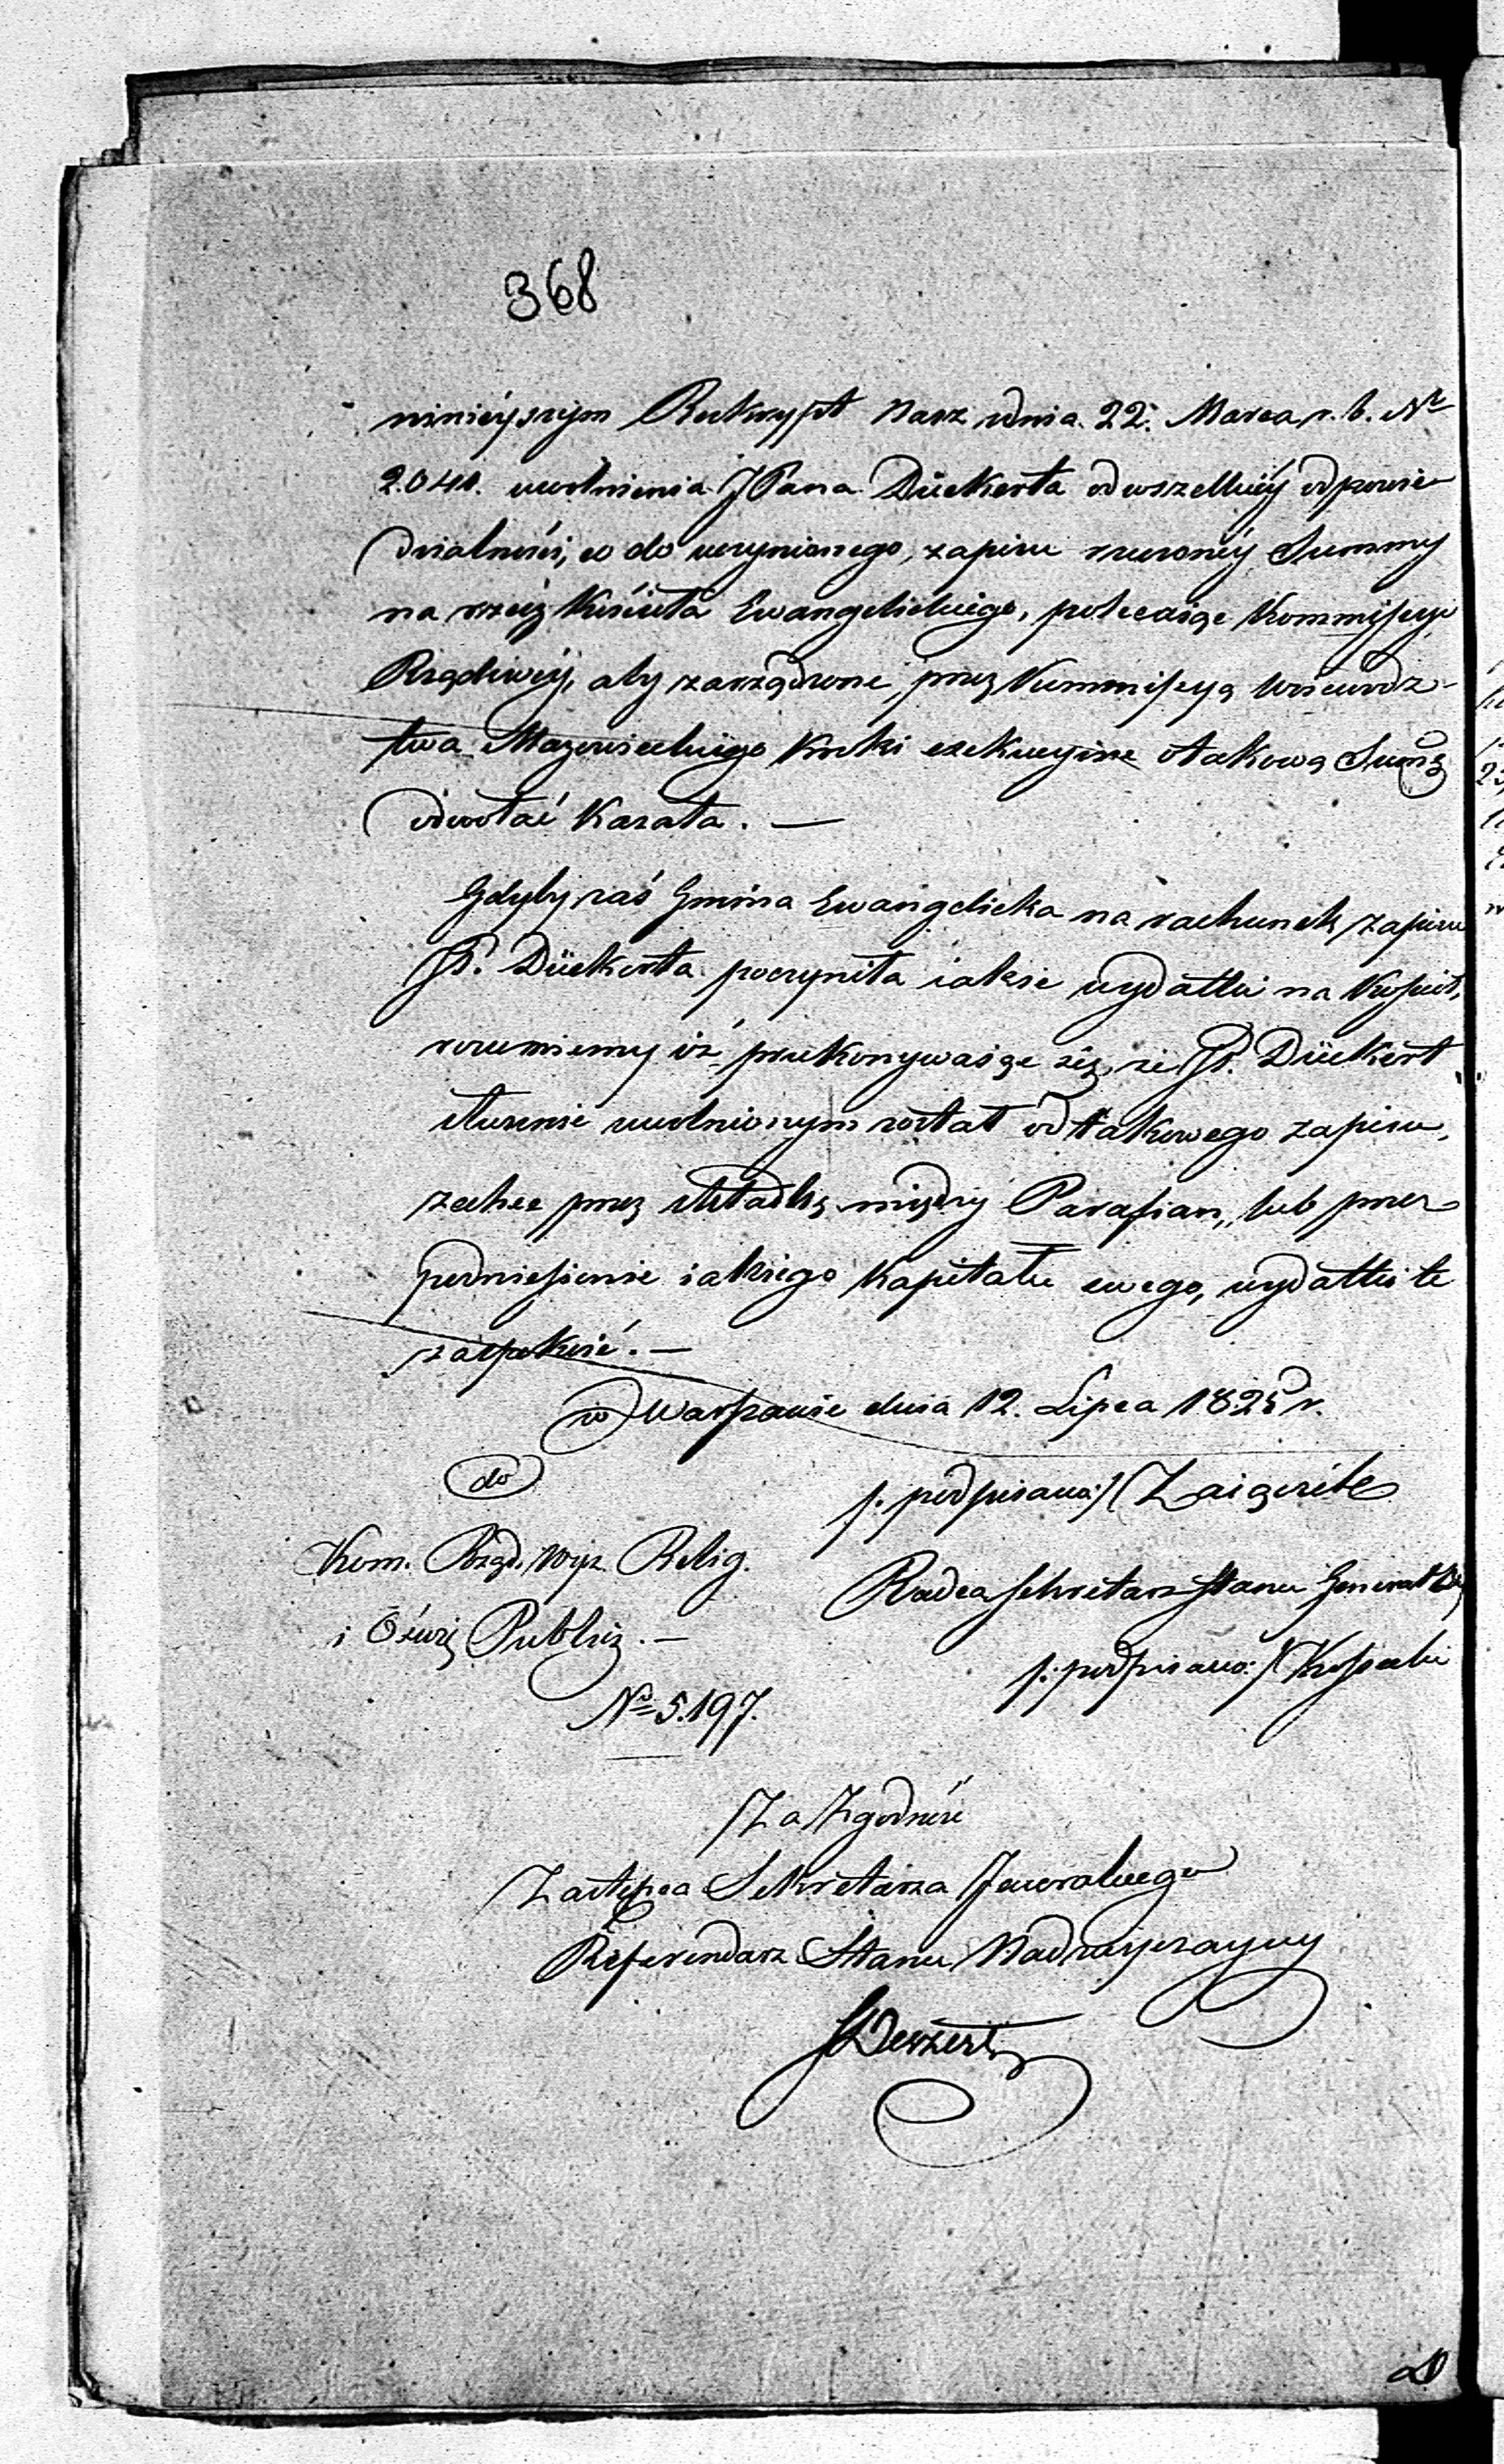 368
ninieyszym Reskrypt Nasz z dnia 22. Marca r. b. Nr
2041. uwolnienia JPana Dückerta od wszelkiey odpowie
dzialności, co do uczynionego zapisu rzeczoney Summy
na rzecz Kościoła Ewangelickiego, polecaiąc Kommissyi
Rządowey, aby zarządzone przez Kommissyą Woiewódz-
twa Mazowieckiego kroki exekucyine o takową Summę
odwołać kazała. —
Gdyby zaś Gmina Ewangelicka na rachunek zapisu
JP. Dückerta poczyniła iakie wydatki na Kościoł,
rozumiemy iż przekonywaiąc się, że JP. Dückert
słusznie uwolnionym został od takowego zapisu,
zechce przez składkę między Parafian, lub przez
podniesienie iakiego Kapitału swego, wydatki te
zaspokoić. —
w Warszawie dnia 12. Lipca 1825 r.
do
Kom. Rząd. Wyz. Relig.
i Oświę Publicz. —
No 5.197.
/: podpisano:/ Zaiączek
Radca Sekretarz Stanu Generał Bry
/: podpisano:/ Kossecki
Za Zgodność
Zastępca Sekretarza Jeneralnego
Referendarz Stanu Nadzwyczayny